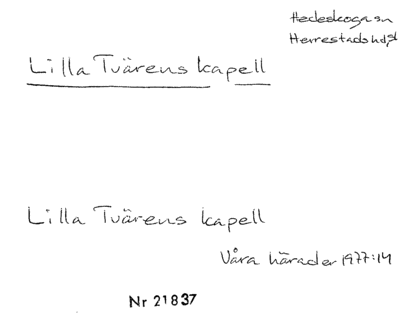 Hedeskoga sn
Herrestads hd,
Lilla Tvärens kapell
Lilla Tvärens kapell
Våra härader 1977:14
Nr 21837